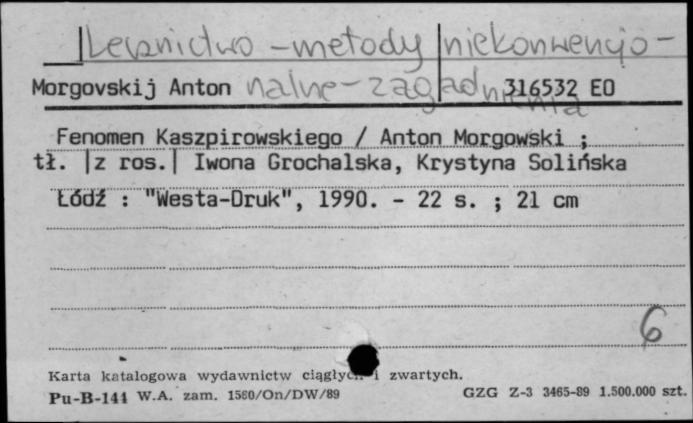 Lecznictwo - metody niekonwencjo-
Morgovskij Anton nalne - zagadnienia 316532 EO
Fenomen Kaszpirowskiego / Anton Morgowski ;
tł. |z ros.| Iwona Grochalska, Krystyna Solińska
Łódź : "Westa-Druk", 1990. - 22 s. ; 21 cm
6
Karta katalogowa wydawnictw ciągłych i zwartych.
Pu-B-144 W.A. zam. 1580/On/DW/89 GZG Z-3 3465-89 1.500.000 szt.